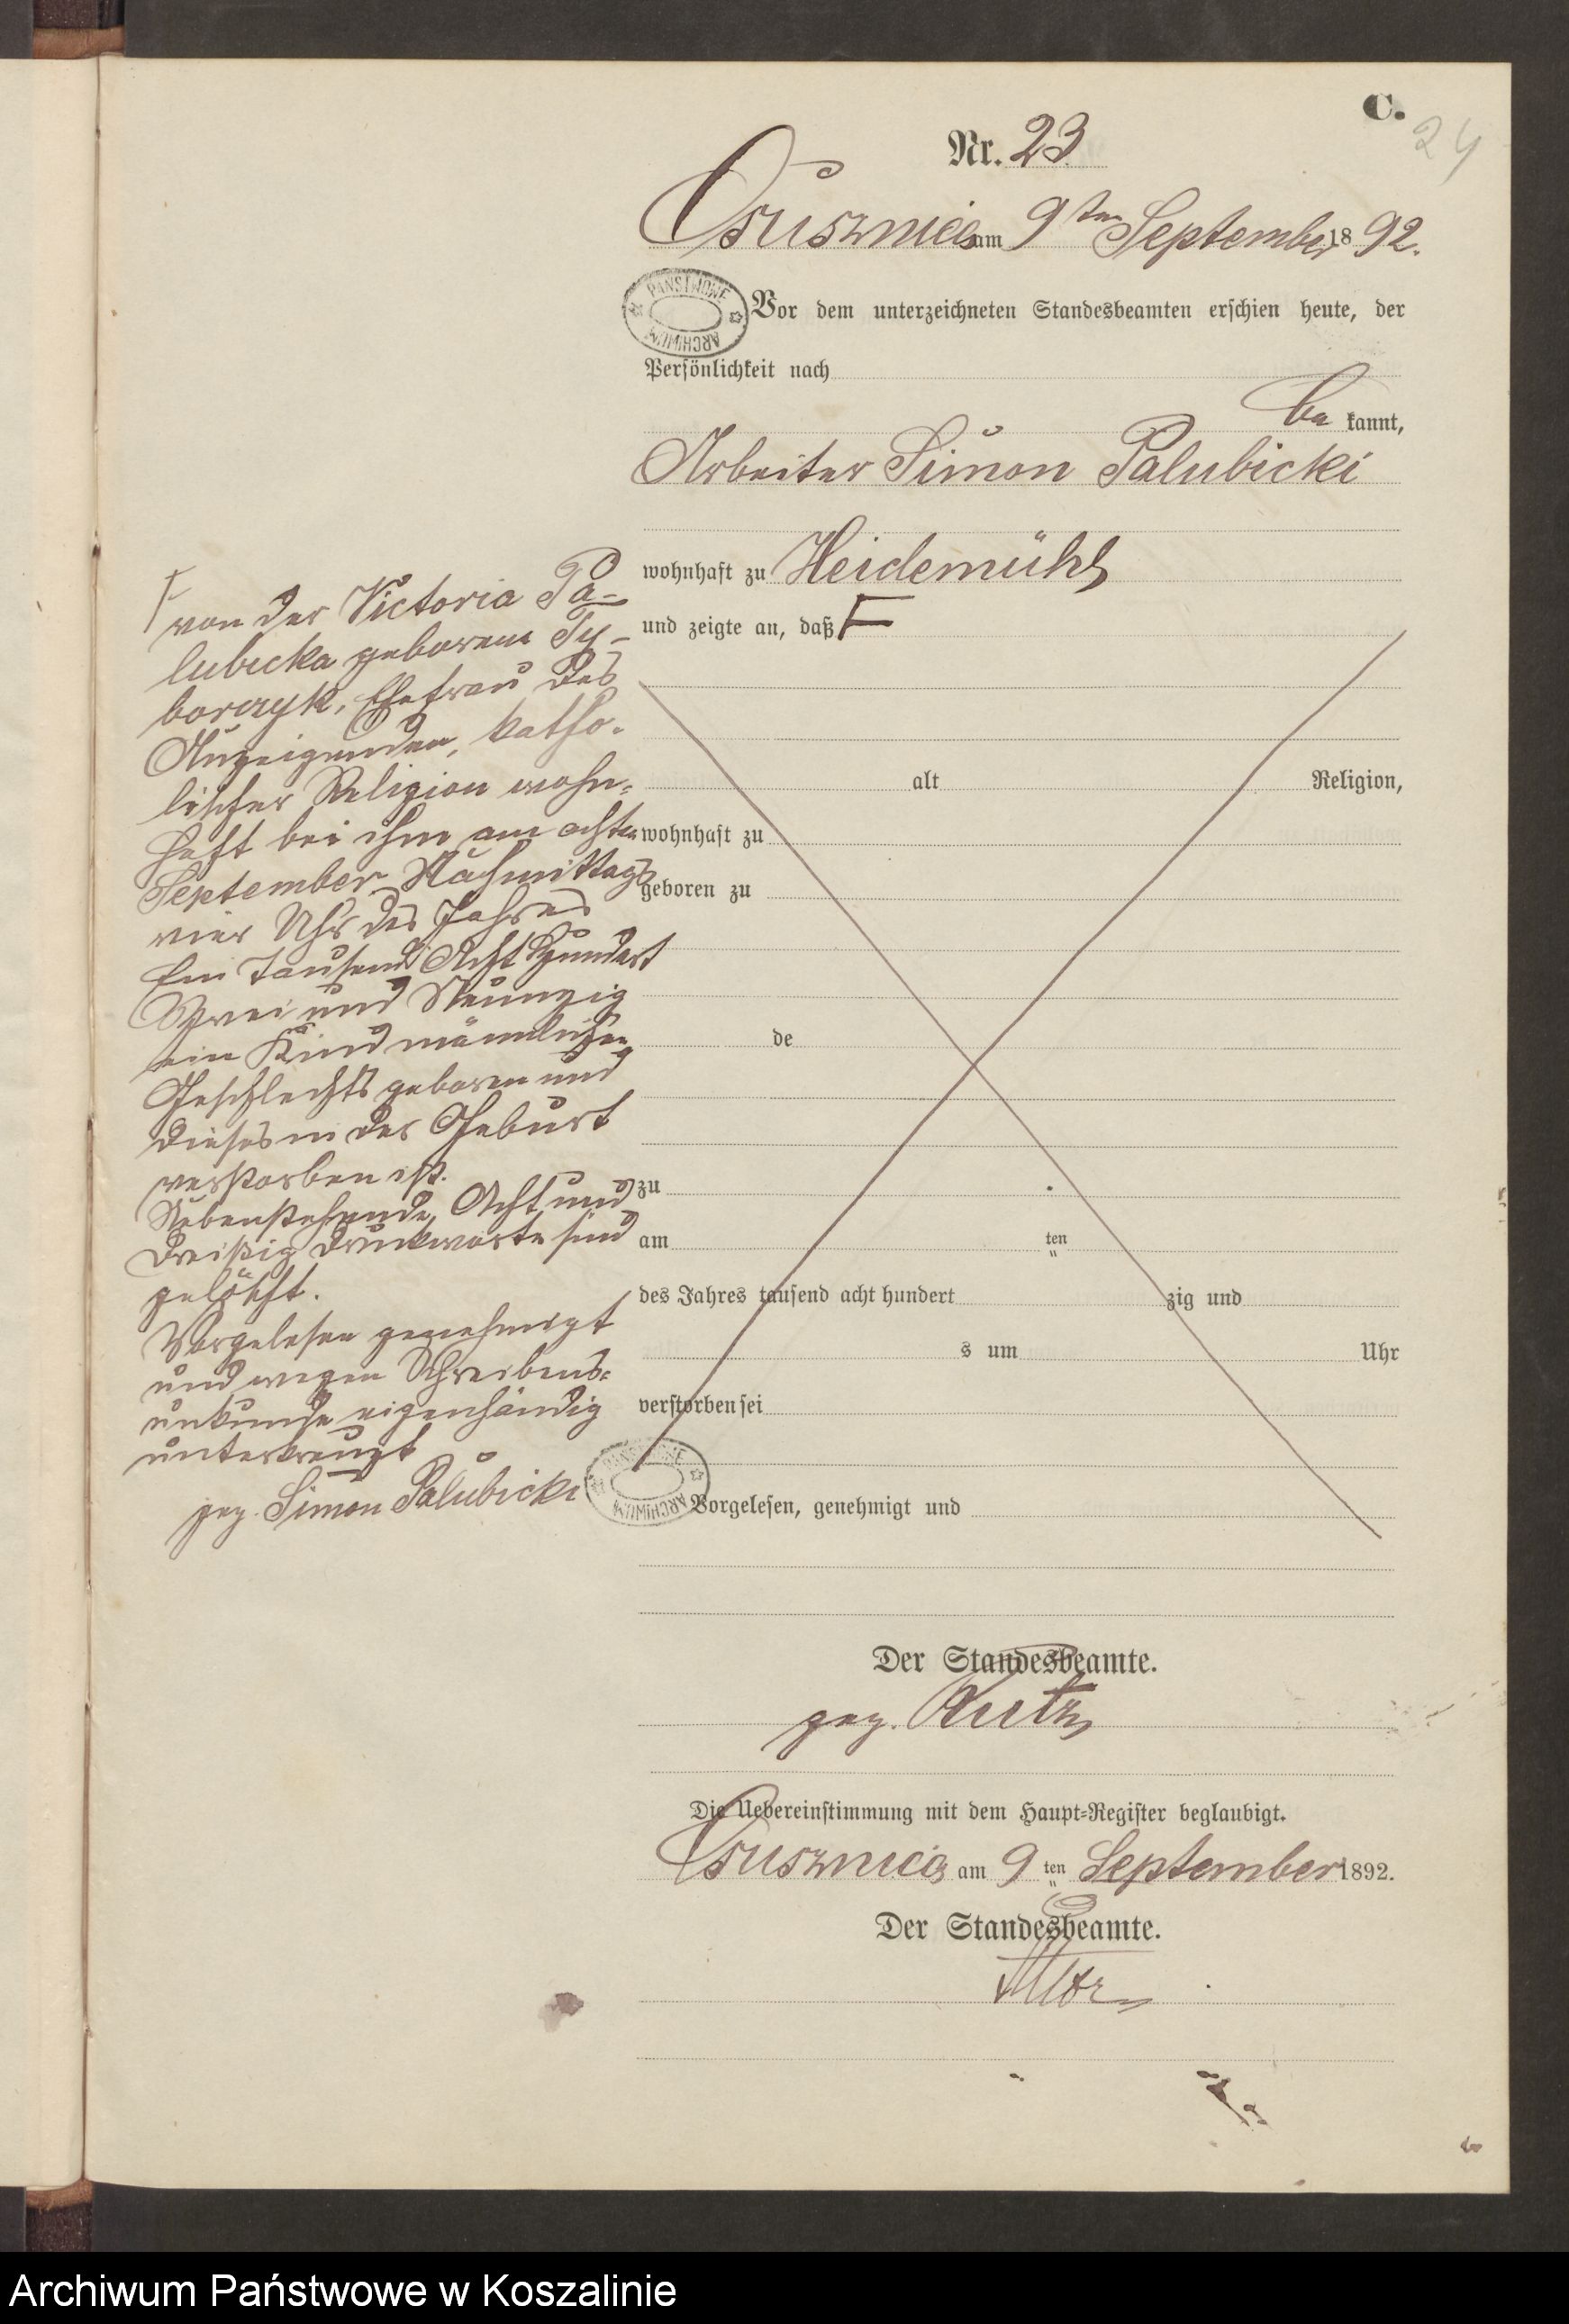 C.
24
Nr. 23
Ossusznica am 9ten September 1892.
PAŃSTWOWE ARCHIWUM
Vor dem unterzeichneten Standesbeamten erschien heute, der
Persönlichkeit nach
be kannt,
Arbeiter Simon Palubicki
wohnhaft zu Heidemühl
und zeigte an, daß F
alt Religion,
wohnhaft zu
geboren zu
de
zu
am ten
des Jahres tausend acht hundert zig und
s um Uhr
verstorben sei
F von der Victoria Pa-
lubicka geborene Ty-
borczyk, Ehefrau des
Anzeigenden, katho-
lischer Religion wohn-
haft bei ihm am achten
September Nachmittags
vier Uhr des Jahres
Ein Tausend Acht Hundert
Zwei und Neunzig
ein Kind männlichen
Geschlechts geboren und
dieses in der Geburt
verstorben ist.
Nebenstehende Acht und
dreißig Druckworte sind
gelöscht.
Vorgelesen genehmigt
und wegen Schreibens-
unkunde eigenhändig
unterkreuzt
gez. Simon Palubicki
PAŃSTWOWE ARCHIWUM
Vorgelesen, genehmigt und
Der Standesbeamte.
gez. Kutz
Die Uebereinstimmung mit dem Haupt-Register beglaubigt.
Ossusznica am 9 ten September 1892.
Der Standesbeamte.
Archiwum Państwowe w Koszalinie